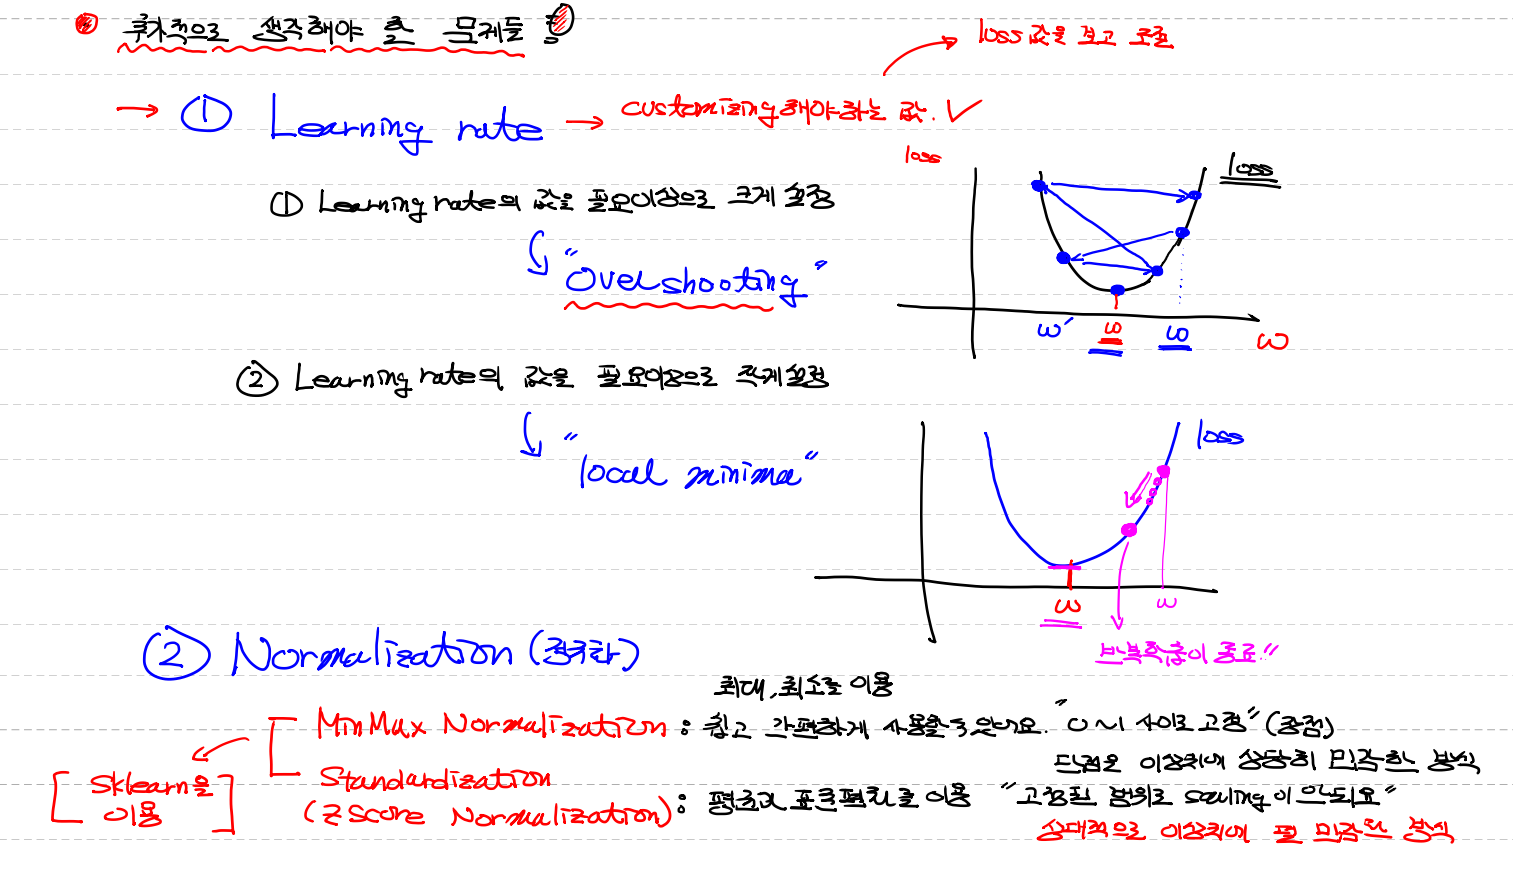 추가적으로 생각해야 할 문제들!
loss 값을 보고 조절
① Learning rate → customizing해야하는 값.
loss
loss
① Learning rate의 값을 필요이상으로 크게 설정
"Overshooting"
w' w w w
② Learning rate의 값을 필요이상으로 작게 설정
loss
"local minima"
w w
반복학습이 종료!!
② Normalization (정규화)
최대, 최소를 이용
MinMax Normalization : 쉽고 간편하게 사용할 수 있어요. "0~1 사이로 고정" (장점)
단점은 이상치에 상당히 민감한 방식
Sklearn을
이용
Standardization
(Z Score Normalization) : 평균과 표준편차를 이용 "고정된 범위로 scaling이 안되요"
상대적으로 이상치에 덜 민감한 방식